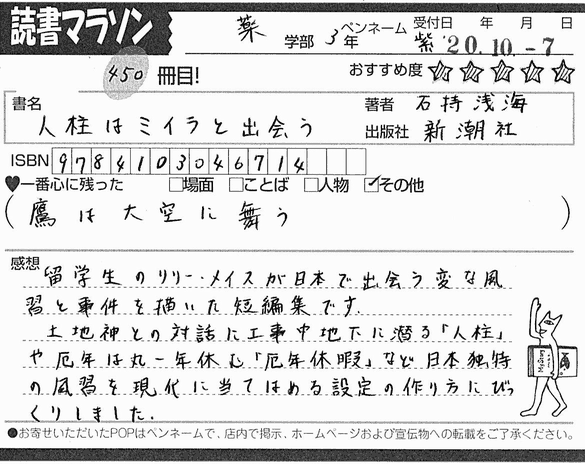 読書マラソン
薬 学部 3年 ペンネーム 紫 受付日 年 月 日
'20.10.-7
450 冊目! おすすめ度 ☆☆☆☆☆
書名 人柱はミイラと出会う
著者 石持浅海
出版社 新潮社
ISBN 9784103046714
♥一番心に残った □場面 □ことば □人物 ☑その他
(鷹は大空に舞う)
感想
留学生のリリー・メイスが日本で出会う変な風
習と事件を描いた短編集です.
土地神との対話に工事中地下に潜る「人柱」
や厄年は丸一年休む「厄年休暇」など日本独特
の風習を現代に当てはめる設定の作り方にびっ
くりしました.
●お寄せいただいたPOPはペンネームで、店内で掲示、ホームページおよび宣伝物への転載をご了承ください。